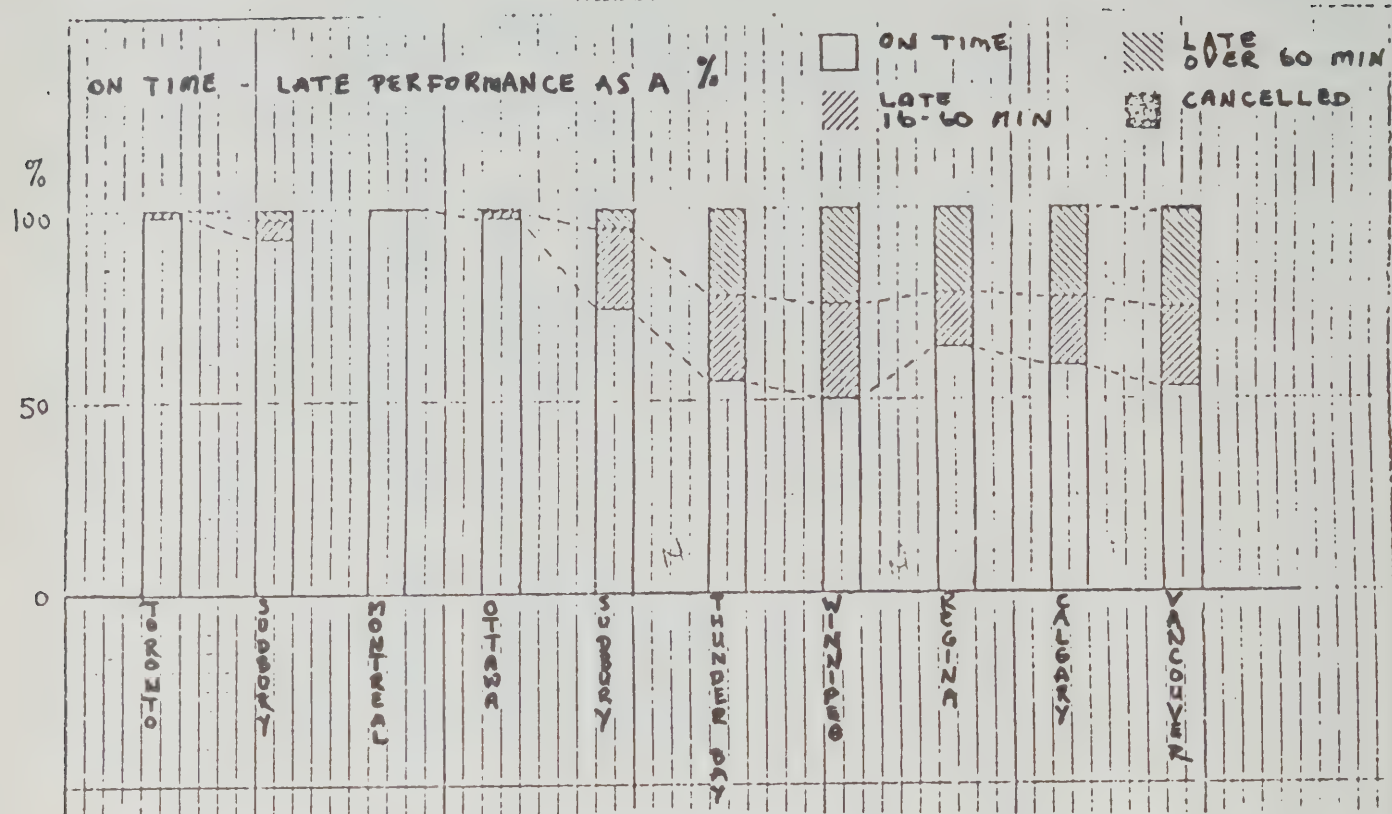 ON TIME - LATE PERFORMANCE AS A %
ON TIME
LATE
16-60 MIN
LATE
OVER 60 MIN
CANCELLED
%
100
50
0
TORONTO
SUDBURY
MONTREAL
OTTAWA
SUDBURY
THUNDER BAY
WINNIPEG
REGINA
CALGARY
VANCOUVER